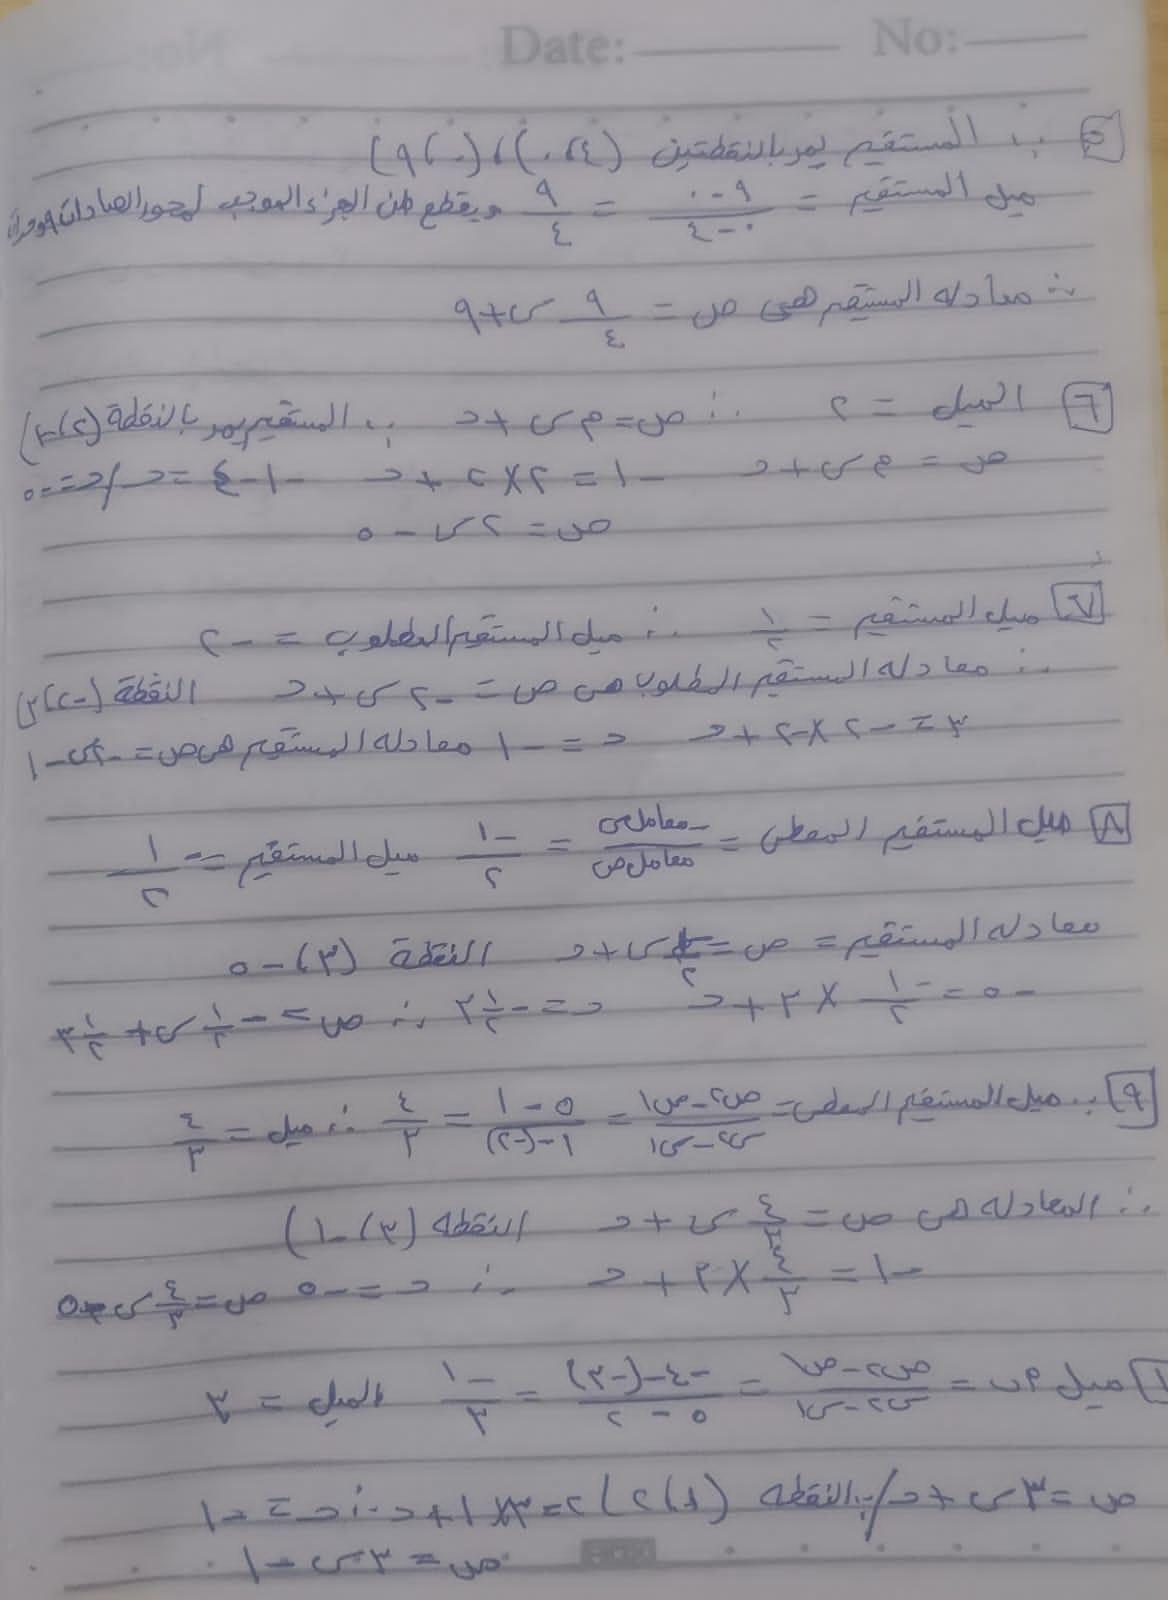 Date: No:
٥ ∵ المستقيم يمر بالنقطتين (٤، ٠)، (٠، ٩)
ميل المستقيم = ٩ - ٠ / ٠ - ٤ = ٩/٤ ويقطع من الجزء الموجب لمحور الصادات ٩ وحدات
∴ معادله المستقيم هى ص = ٩/٤ س + ٩
٦ الميل = ٢ ∴ ص = م س + د ∵ المستقيم يمر بالنقطة (٢، -١)
ص = م س + د -١ = ٢ × ٢ + د -١ - ٤ = د / د = -٥
ص = ٢ س - ٥
٧ ميل المستقيم = ١/٢ ∴ ميل المستقيم المطلوب = -٢
∴ معادله المستقيم المطلوب هى ص = -٢ س + د النقطة (-٢، ٣)
٣ = -٢ × -٢ + د د = -١ معادله المستقيم هى ص = -٢س - ١
٨ ميل المستقيم المعطى = -معامل س / معامل ص = -١/٢ ميل المستقيم = -١/٢
معادله المستقيم = ص = -١/٢ س + د النقطة (٣، -٥
-٥ = -١/٢ × ٣ + د د = -٣ ١/٢ ∴ ص = -١/٢ س + ٣ ١/٢
٩ ∵ ميل المستقيم المعطى = ص٢ - ص١ / س٢ - س١ = ٥ - ١ / ١ - (-٢) = ٤/٣ ∴ ميل = ٤/٣
∴ المعادله هى ص = ٤/٣ س + د النقطه (٣، -١)
-١ = ٤/٣ × ٣ + د ∴ د = -٥ ص = ٤/٣ س - ٥
ميل م ب = ص٢ - ص١ / س٢ - س١ = -٤ - (-٣) / ٥ - ٢ = -١/٣ الميل = ٣
ص = ٣ س + د / ∵ النقطه (١، ٢) ٢ = ٣ × ١ + د ∴ د = -١
ص = ٣ س - ١